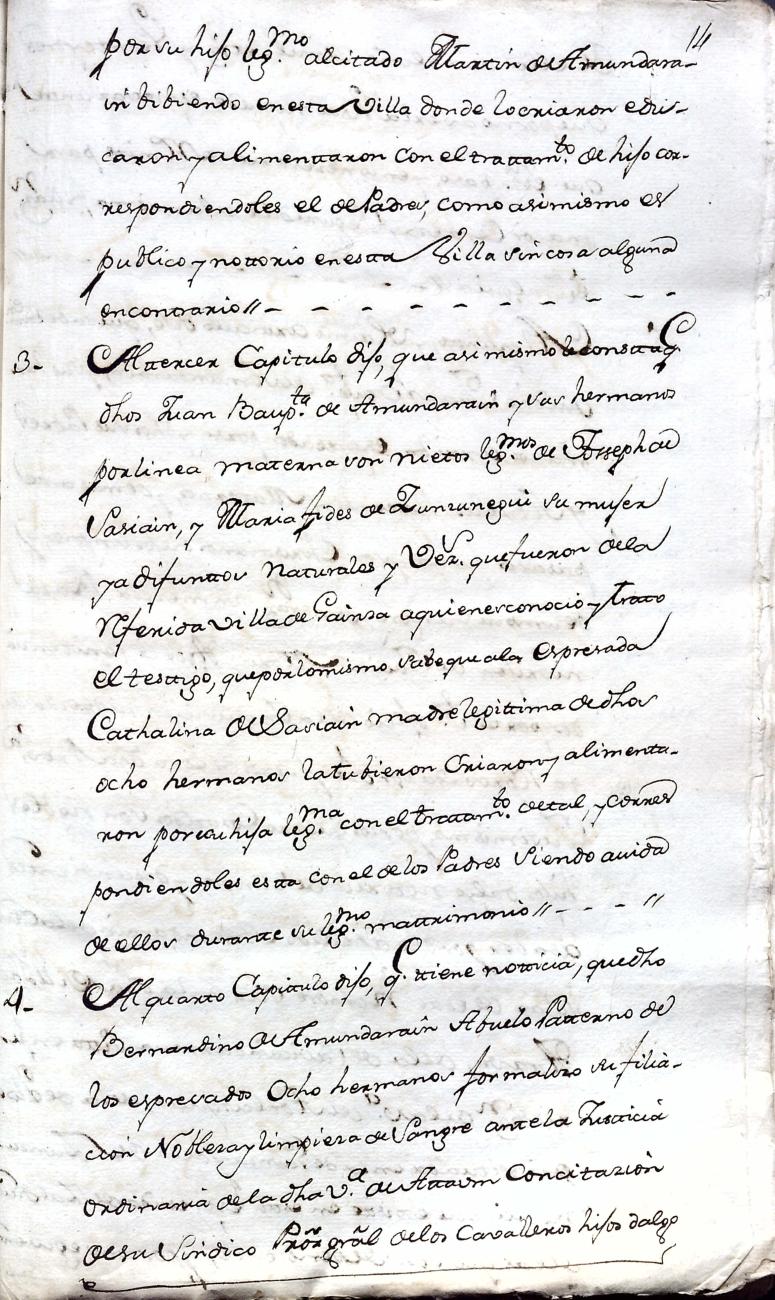 14
por su hijo leg.mo al citado Martin de Amundara-
in bibiendo en esta Villa donde lo criaron edu-
caron y alimenttaron con el trattam.to de hijo cor-
respondiendoles el de Padres, como asimismo es
publico y nottorio en estta Villa sin cosa alguna
en contrario //- - - - - - - - - -
3- Al tercer Capitulo dijo, que asimismo le constta q.
dhos Juan Baup.ta de Amundarain y sus hermanos
por linea materna son nietos leg.mos de Josseph de
Sasiain, y Maria fides de Zunzunegui su mujer
ya difunttos Naturales y Vez.s que fueron de la
Referida villa de Gainza a quienes conocio y tratto
el testtigo, que por lo mismo sabe que a la Espresada
Cathalina de Sasiain madre legittima de dhos
ocho hermanos la tubieron Criaron y alimenta-
ron por su hija leg.ma con el trattam.to de tal, y corres
pondiendoles estta con el de los Padres siendo avida
de ellos durantte su leg.mo mattrimonio //- - - //
4- Al quarto Capittulo dijo, q. ttiene notticia, que dho
Bernardino de Amundarain Abuelo Patterno de
los espresados Ocho hermanos formalizo su filia-
cion Nobleza y limpieza de Sangre ante la Justicia
Ordinaria de la dha V.a de Attaun Con citazion
de su Sindico Pror gral de los Cavalleros hijos dalgo